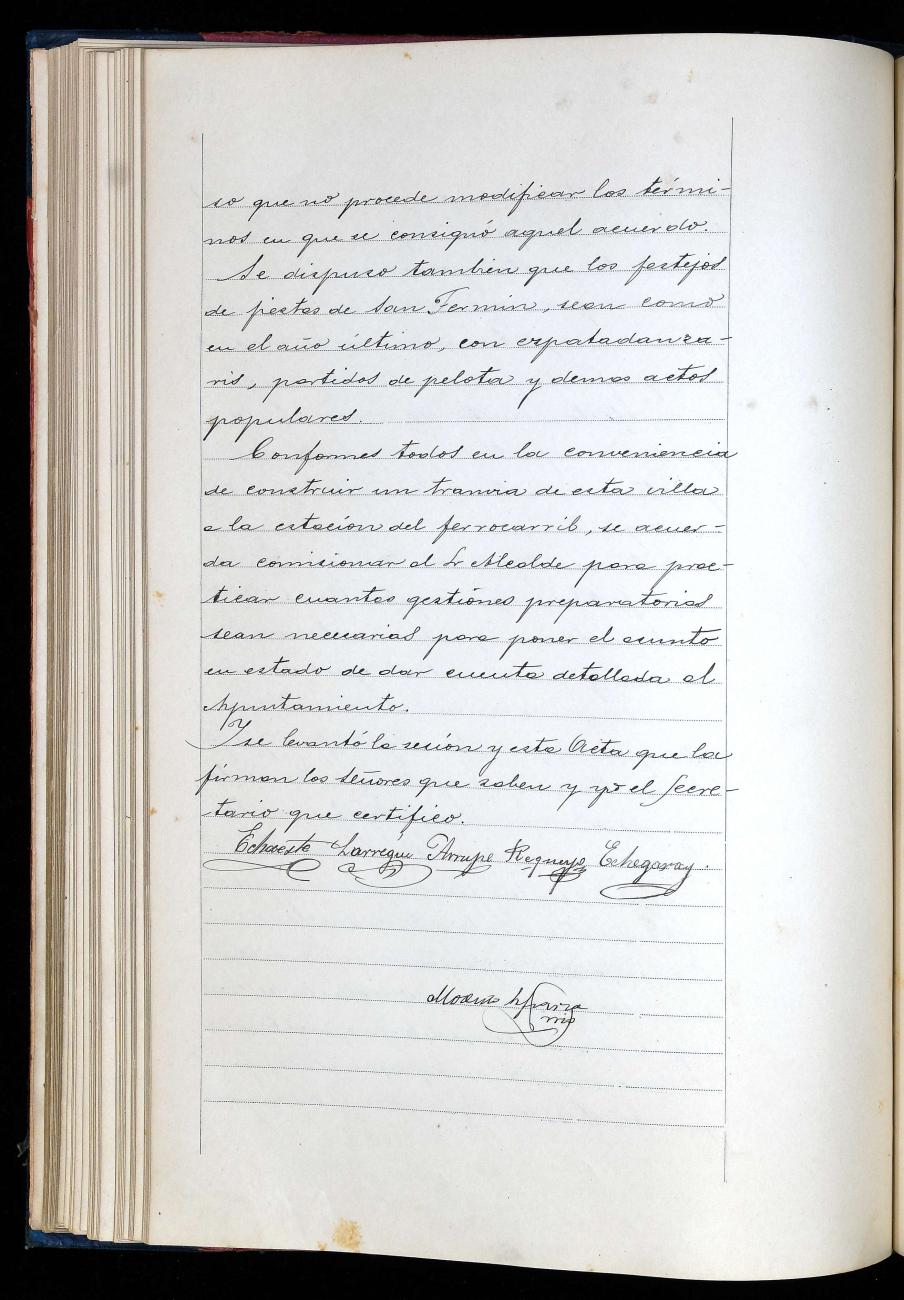 so que no procede modificar los térmi-
nos en que se consignó aquel acuerdo.
Se dispuso tambien que los festejos
de fiestas de San Fermin, sean como
en el año último, con ezpatadanza-
ris, partidos de pelota y demas actos
populares.
Conformes todos en la conveniencia
de construir un tranvia de esta villa
a la estación del ferrocarril, se acuer-
da comisionar al Sr Alcalde para prac-
ticar cuantas gestiónes preparatorias
sean necesarias para poner el asunto
en estado de dar cuenta detallada al
Ayuntamiento.
Y se levantó la sesión y esta Acta que la
firman los señores que saben y yo el Secre-
tario que certifico.
Echaeste Larregui Arrupe Requejo Echegaray.